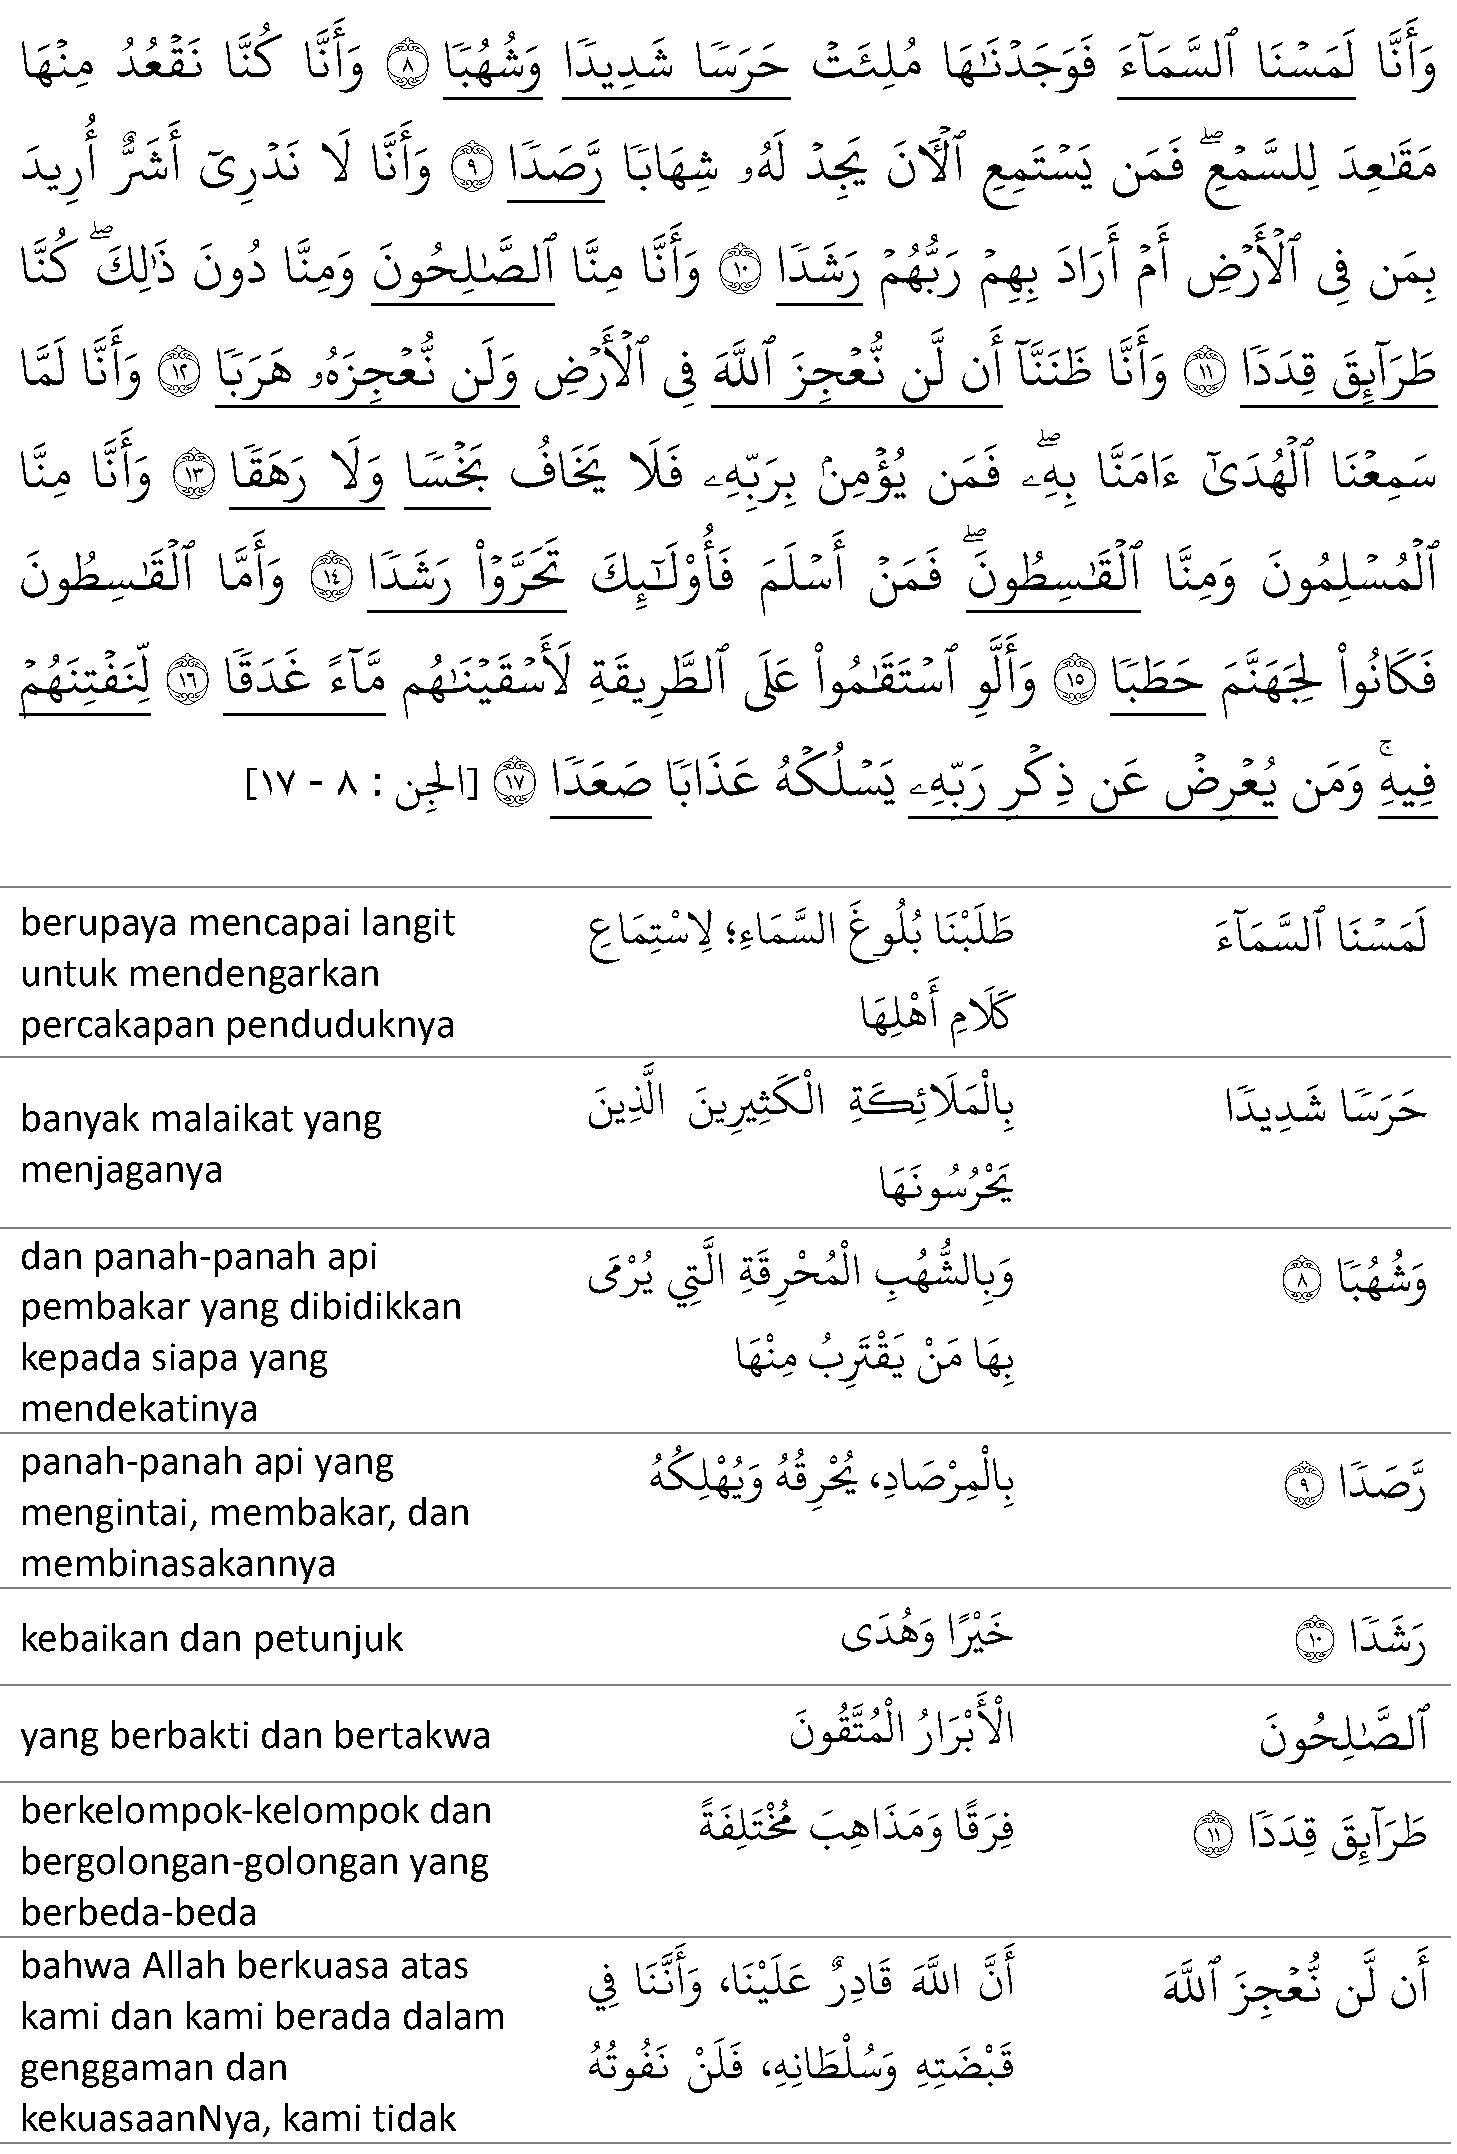 وَأَنَّا لَمَسۡنَا ٱلسَّمَآءَ فَوَجَدۡنَٰهَا مُلِئَتۡ حَرَسٗا شَدِيدٗا وَشُهُبٗا ٨ وَأَنَّا كُنَّا نَقۡعُدُ مِنۡهَا
مَقَٰعِدَ لِلسَّمۡعِۖ فَمَن يَسۡتَمِعِ ٱلۡأٓنَ يَجِدۡ لَهُۥ شِهَابٗا رَّصَدٗا ٩ وَأَنَّا لَا نَدۡرِيٓ أَشَرٌّ أُرِيدَ
بِمَن فِي ٱلۡأَرۡضِ أَمۡ أَرَادَ بِهِمۡ رَبُّهُمۡ رَشَدٗا ١٠ وَأَنَّا مِنَّا ٱلصَّٰلِحُونَ وَمِنَّا دُونَ ذَٰلِكَۖ كُنَّا
طَرَآئِقَ قِدَدٗا ١١ وَأَنَّا ظَنَنَّآ أَن لَّن نُّعۡجِزَ ٱللَّهَ فِي ٱلۡأَرۡضِ وَلَن نُّعۡجِزَهُۥ هَرَبٗا ١٢ وَأَنَّا لَمَّا
سَمِعۡنَا ٱلۡهُدَىٰٓ ءَامَنَّا بِهِۦۖ فَمَن يُؤۡمِنۢ بِرَبِّهِۦ فَلَا يَخَافُ بَخۡسٗا وَلَا رَهَقٗا ١٣ وَأَنَّا مِنَّا
ٱلۡمُسۡلِمُونَ وَمِنَّا ٱلۡقَٰسِطُونَۖ فَمَنۡ أَسۡلَمَ فَأُوْلَٰٓئِكَ تَحَرَّوۡاْ رَشَدٗا ١٤ وَأَمَّا ٱلۡقَٰسِطُونَ
فَكَانُواْ لِجَهَنَّمَ حَطَبٗا ١٥ وَأَلَّوِ ٱسۡتَقَٰمُواْ عَلَى ٱلطَّرِيقَةِ لَأَسۡقَيۡنَٰهُم مَّآءً غَدَقٗا ١٦ لِّنَفۡتِنَهُمۡ
فِيهِۚ وَمَن يُعۡرِضۡ عَن ذِكۡرِ رَبِّهِۦ يَسۡلُكۡهُ عَذَابٗا صَعَدٗا ١٧ [الجِن : ٨ - ١٧]
لَمَسۡنَا ٱلسَّمَآءَ
طَلَبْنَا بُلُوغَ السَّمَاءِ؛ لِاسْتِمَاعِ
كَلَامِ أَهْلِهَا
berupaya mencapai langit
untuk mendengarkan
percakapan penduduknya
حَرَسٗا شَدِيدٗا
بِالْمَلَائِكَةِ الْكَثِيرِينَ الَّذِينَ
يَحْرُسُونَهَا
banyak malaikat yang
menjaganya
وَشُهُبٗا ٨
وَبِالشُّهُبِ الْمُحْرِقَةِ الَّتِي يُرْمَى
بِهَا مَنْ يَقْتَرِبُ مِنْهَا
dan panah-panah api
pembakar yang dibidikkan
kepada siapa yang
mendekatinya
رَّصَدٗا ٩
بِالْمِرْصَادِ، يُحْرِقُهُ وَيُهْلِكُهُ
panah-panah api yang
mengintai, membakar, dan
membinasakannya
رَشَدٗا ١٠
خَيْرًا وَهُدَى
kebaikan dan petunjuk
ٱلصَّٰلِحُونَ
الْأَبْرَارُ الْمُتَّقُونَ
yang berbakti dan bertakwa
طَرَآئِقَ قِدَدٗا ١١
فِرَقًا وَمَذَاهِبَ مُخْتَلِفَةً
berkelompok-kelompok dan
bergolongan-golongan yang
berbeda-beda
أَن لَّن نُّعۡجِزَ ٱللَّهَ
أَنَّ اللَّهَ قَادِرٌ عَلَيْنَا، وَأَنَّنَا فِي
قَبْضَتِهِ وَسُلْطَانِهِ، فَلَنْ نَفُوتُهُ
bahwa Allah berkuasa atas
kami dan kami berada dalam
genggaman dan
kekuasaanNya, kami tidak